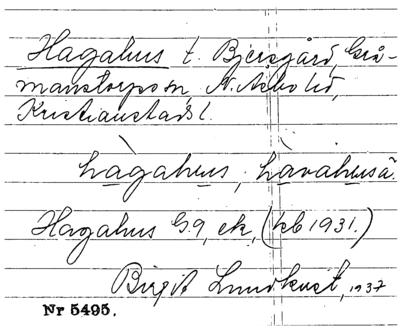 Hagahus t. Bjersgård, Grå-
manstorps sn, N. Åsbo hd,
Kristianstads l.
hàgahus, hàvahusa.
Hagahus G9, ek, (hb 1931.)
Birgit Lundkvist, 1937
Nr 5495.